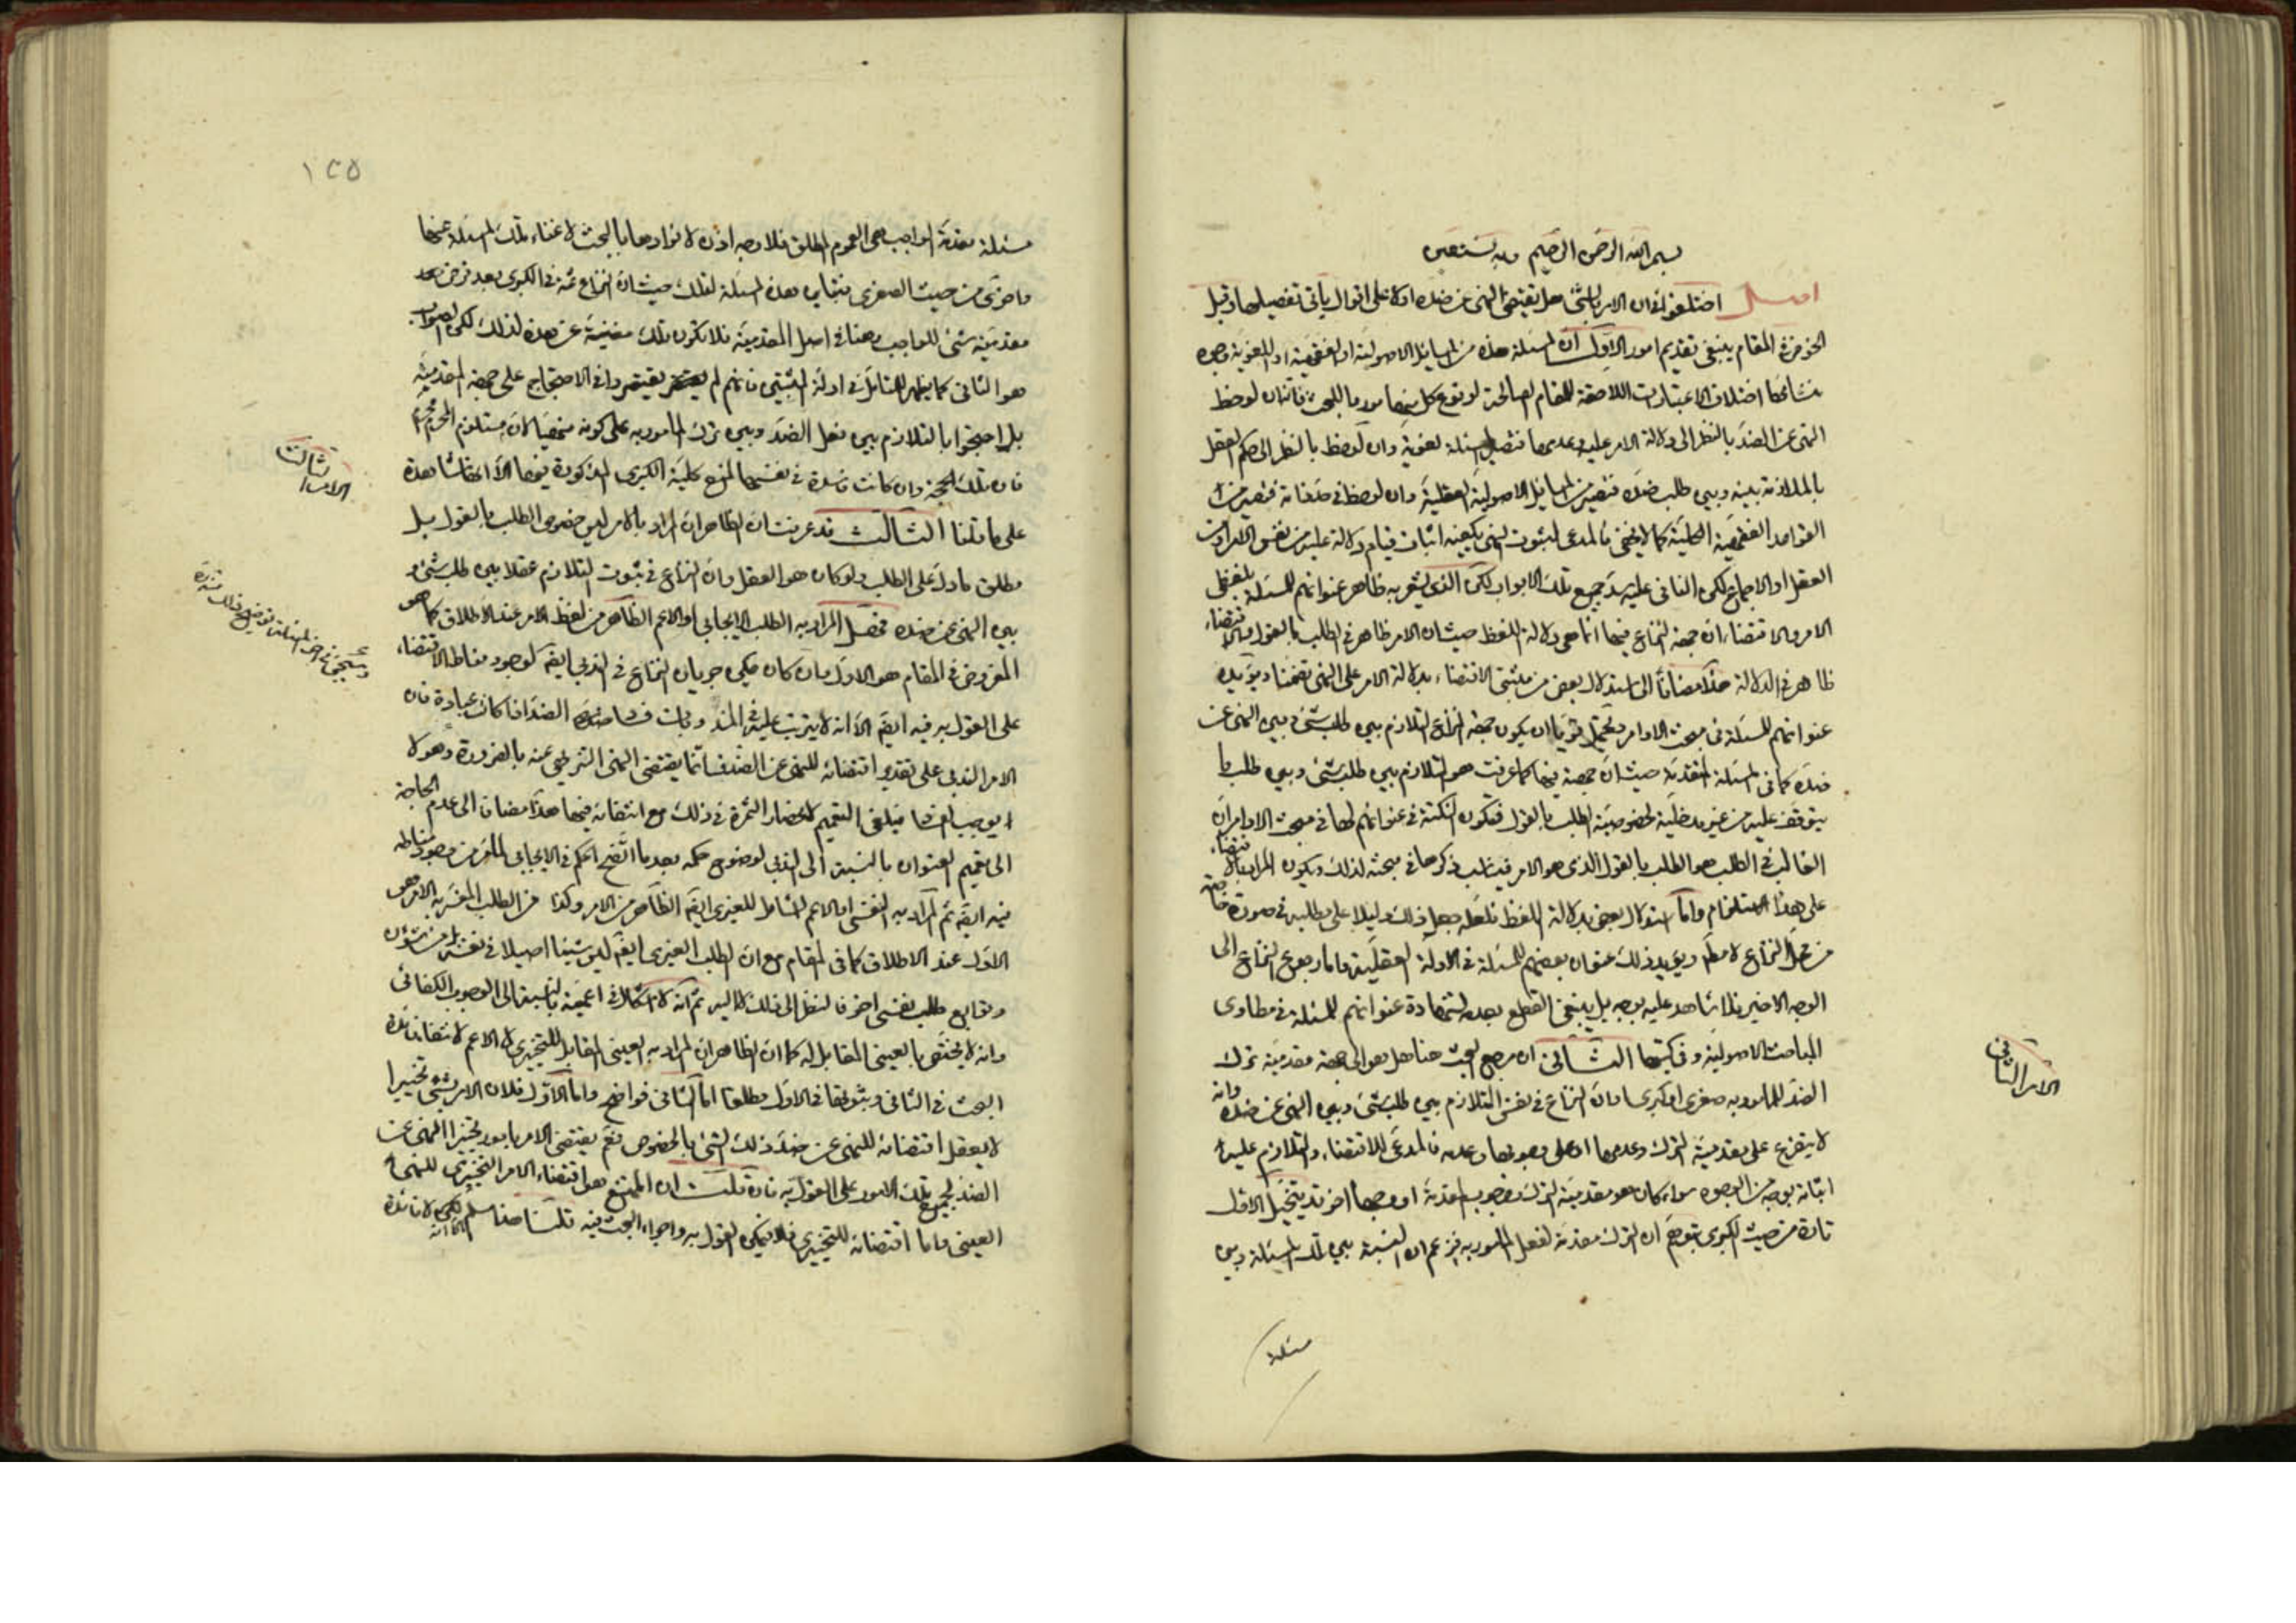 بسم الله الرحمن الرحيم وبه نستعين
اصل اختلفوا في ان الامر بالشئ هل يقتضى النهى عن ضده اولا على اقوال يأتى تفصيلها وقبل
الخوض في المقام ينبغى تقديم امور الاول ان المسئلة هذه من المسائل الاصولية او الفقهية او اللغوية وجوه
منشائها اختلاف الاعتبارات اللاحقة للمقام الصالحة لوقوع كل منها مورد البحث فانه ان لوحظ
النهى عن الضد بالنظر الى دلالة الامر عليه وعدمها فتصير المسئلة لغوية وان لوحظ بالنظر الى حكم العقل
بالملازمة بينه وبين طلب ضده فتصير من المسائل الاصولية العقلية وان لوحظ في فتصير من
القواعد الفقهية الكلية كما لا يخفى فالمدعى لثبوت النهى يكفيه اثبات قيام دلالة عليه من نفس الامر او من
العقل او الاجماع لكن النافى عليه سد جميع تلك الابواب لكن الذى يشعر به ظاهر عنوانهم للمسئلة بلفظى
الامر والاقتضاء ان جهة النزاع فيها انما هى دلالة اللفظ حيث ان الامر ظاهر في الطلب بالقول والاقتضاء
ظاهر في الدلالة هذا مضافا الى استدلال بعض من مثبتى الاقتضاء بدلالة الامر على النهى تضمنا ويؤيده
عنوانهم للمسئلة في مبحث الاوامر ويحتمل قويا ان يكون جهة النزاع التلازم بين طلب شئ وبين النهى عن
ضده كما في المسئلة المتقدمة حيث ان جهته فيها كما عرفت هو التلازم بين طلب شئ وبين طلب ما
يتوقف عليه من غير مدخلية لخصوصية الطلب بالقول فيكون النكتة في عنوانهم لها في مبحث الاوامر ان
الغالب في الطلب هو الطلب بالقول الذى هو الامر فيناسب ذكرها في مبحثه لذلك ويكون المراد بالاقتضاء
على هذا الاستلزام واما استدلال بعض بدلالة اللفظ فلعله جعل ذلك دليلا على مطلبه في صورة خاصة
من محل النزاع لا مطلقا ويؤيد ذلك عنوان بعضهم للمسئلة في الادلة العقلية واما رجوع النزاع الى
الوجه الاخير فلا شاهد عليه بوجه بل ينبغى القطع بعدمه لشهادة عنوانهم للمسئلة في مطاوى
المباحث الاصولية وفي كتبها الثانى ان مرجع البحث هنا هل هو الى جهة مقدمية ترك
الضد للمأمور به صغرى او كبرى او ان النزاع في نفس التلازم بين طلب شئ وبين النهى عن ضده وانه
لا يتفرع على مقدمية الترك وعدمها او على وجوبها وعدمه فالمدعى للاقتضاء والتلازم عليه
اثباته بوجه من الوجوه سواء كان هو مقدمية الترك ووجوب المقدمة او وجها آخر قد يتخيل الاول
تارة من حيث الكبرى بتوهم ان الترك مقدمة لفعل المأمور به فزعم ان النسبة بين تلك المسئلة وبين
مسئلة
الامر الثانى
١٢٥
مسئلة مقدمة الواجب هى العموم المطلق فلا وجه اذن لانفرادها بالبحث لاغناء تلك المسئلة عنها
واخرى من حيث الصغرى فتباين هذه المسئلة لتلك حيث ان النزاع ثمة في الكبرى بعد فرض
مقدمية شئ للواجب وهنا في اصل المقدمية فلا تكون تلك مغنية عن هذه لذلك لكن الصواب
هو الثانى كما يظهر للمتأمل في ادلة المثبتين فانهم لم يقتصروا في الاحتجاج على جهة المقدمية
بل احتجوا بالتلازم بين فعل الضد وبين ترك المأمور به على كونه منهيا لان مستلزم المحرم محرم
فان تلك الحجة وان كانت فاسدة في نفسها لمنع كلية الكبرى المذكورة فيها الا انها شاهدة
على ما قلنا الثالث قد عرفت ان الظاهر ان المراد بالامر ليس خصوص الطلب بالقول بل
مطلق ما دل على الطلب ولو كان هو العقل وان النزاع في ثبوت التلازم عقلا بين طلب شئ و
بين النهى عن ضده فهل المراد به الطلب الايجابى او الاعم الظاهر من لفظ الامر عند الاطلاق كما هو
المفروض في المقام هو الاول وان كان يمكن جريان النزاع في الندبى ايضا لوجود مناط الاقتضاء
على القول به فيه ايضا الا انه لا يترتب عليه في الندب فساد الضد اذا كان عبادة فان
الامر الندبى على تقدير اقتضائه للنهى عن الضد فانما يقتضى النهى التنزيهى عنه بالضرورة وهو لا
يوجب الفساد فيلغى التعميم لانحصار الثمرة في ذلك مع انتفائه فيها هذا مضافا الى عدم الحاجة
الى تعميم العنوان بالنسبة الى الندبى لوضوح حكمه بعد ما اتضح الحكم في الايجابى لما من وجود مناطه
فيه ايضا ثم المراد به النفسى او الاعم الشامل للغيرى ايضا الظاهر من الامر وكذا من الطلب المفسر به الامر هو
الاول عند الاطلاق كما في المقام مع ان الطلب الغيرى ايضا ليس شيئا اصيلا في نفسه بل من شئون
وتوابع طلب نفسى آخر فالنظر الى ذلك لا اليه ثم انه لا اشكال في اعميته بالنسبة الى الوجوب الكفائى
وانه لا يختص بالعينى المقابل له كما ان الظاهر ان المراد به العينى المقابل للتخييرى لا الاعم لانتفاء فائدة
البحث في الثانى وثبوتها في الاول مطلقا اما الثانى فواضح واما الاول فلان الامر بشئ تخييرا
لا يعقل اقتضائه للنهى عن ضد ذلك الشئ بالخصوص نعم يقتضى الامر بامور تخييرا النهى عن
الضد لجميع تلك الامور على القول به فان قلت ان الممتنع هو اقتضاء الامر التخييرى للنهى
العينى واما اقتضائه للتخييرى فلا فيمكن القول به واجراء البحث فيه قلت هذا مسلم لكن لا فائدة
الامر الثالث